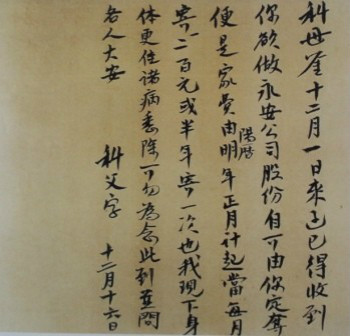 科母鉴十二月一日來函已得收到
你欲做永安公司股份自可由你定奪
便是家費由明年陽曆正月计起當每月
寄二百元或半年寄一次也我現下身
体更佳诸病悉除可勿為念此到並問
老人大安 科父字 十二月十六日